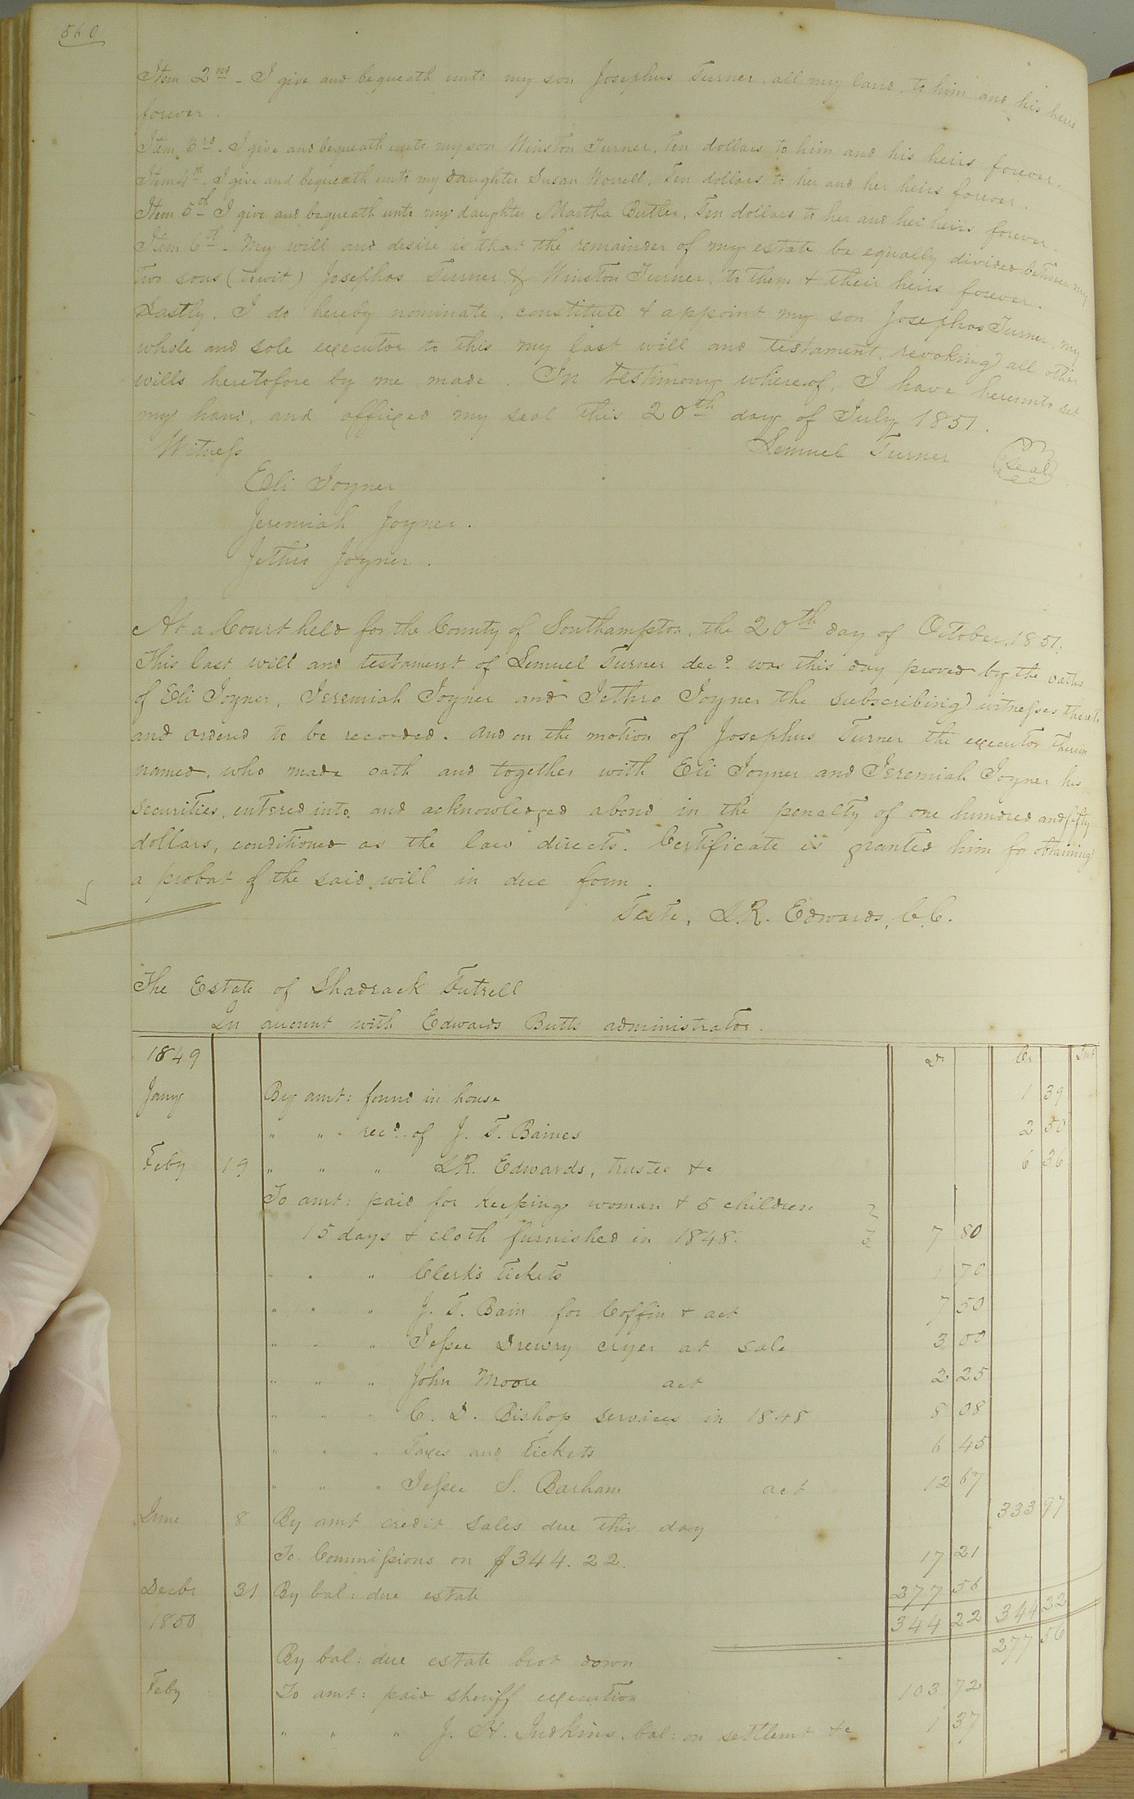 560
Item 2nd - I give and bequeath unto my son Josephus Turner, all my land, to him and his heirs
forever.
Item 3rd. I give and bequeath unto my son Winston Turner, ten dollars to him and his heirs forever.
Item 4th. I give and bequeath unto my daughter Susan Worrell, Ten dollars to her and her heirs forever.
Item 5th I give and bequeath unto my daughter Martha Butler, Ten dollars to her and her heirs forever.
Item 6th - My will and desire is that the remainder of my estate be equally divided between my
two sons (towit) Josephus Turner & Winston Turner, to them & their heirs forever.
Lastly. I do hereby nominate, constitute & appoint my son Josephus Turner, my
whole and sole executor to this my last will and testament, revoking all other
wills heretofore by me made. In testimony whereof, I have hereunto set
my hand, and affixed my seal this 20th day of July 1851.
Witness Lemuel Turner (Seal)
Eli Joyner
Jeremiah Joyner.
Jethro Joyner.
At a Court held for the County of Southampton, the 20th day of October, 1851.
This last will and testament of Lemuel Turner decd. was this day proved by the oaths
of Eli Joyner, Jeremiah Joyner and Jethro Joyner the subscribing witnesses thereto
and ordered to be recorded. And on the motion of Josephus Turner the executor therein
named, who made oath and together with Eli Joyner and Jeremiah Joyner his
securities, entered into and acknowledged a bond in the penalty of one hundred and fifty
dollars, conditioned as the law directs. Certificate is granted him for obtaining
a probat of the said will in due form.
Teste, L.R. Edwards, C.C.
The Estate of Shadrack Futrell
In account with Edwards Butts administrator.
1849 Dr Cr
Jany By amt: found in house 1 39
" " " recd. of J. T. Baines 2 50
Feby 19 " " " L.R. Edwards, trustee &c 6 36
To amt: paid for keeping woman & 5 children
15 days & cloth furnished in 1848. 7 80
" " " Clerk's tickets 1 70
" " " J. T. Bain for Coffin & act 7 50
" " " Jesse Drewry cryer at sale 3 00
" " " John Moore act 2 25
" " " C. D. Bishop services in 1848 8 08
" " " Taxes and tickets 6 45
" " " Jesse S. Barham act 12 67
June 8 By amt credit sales due this day 333 97
To Commissions on $344.22. 17 21
Decbr 31 By bal: due estate 277 56
1850 344 22 344 22
By bal: due estate brot down 277 56
Feby To amt: paid sheriff execution 103 72
" " " J. H. Judkins, bal: on settlemt &c 1 37